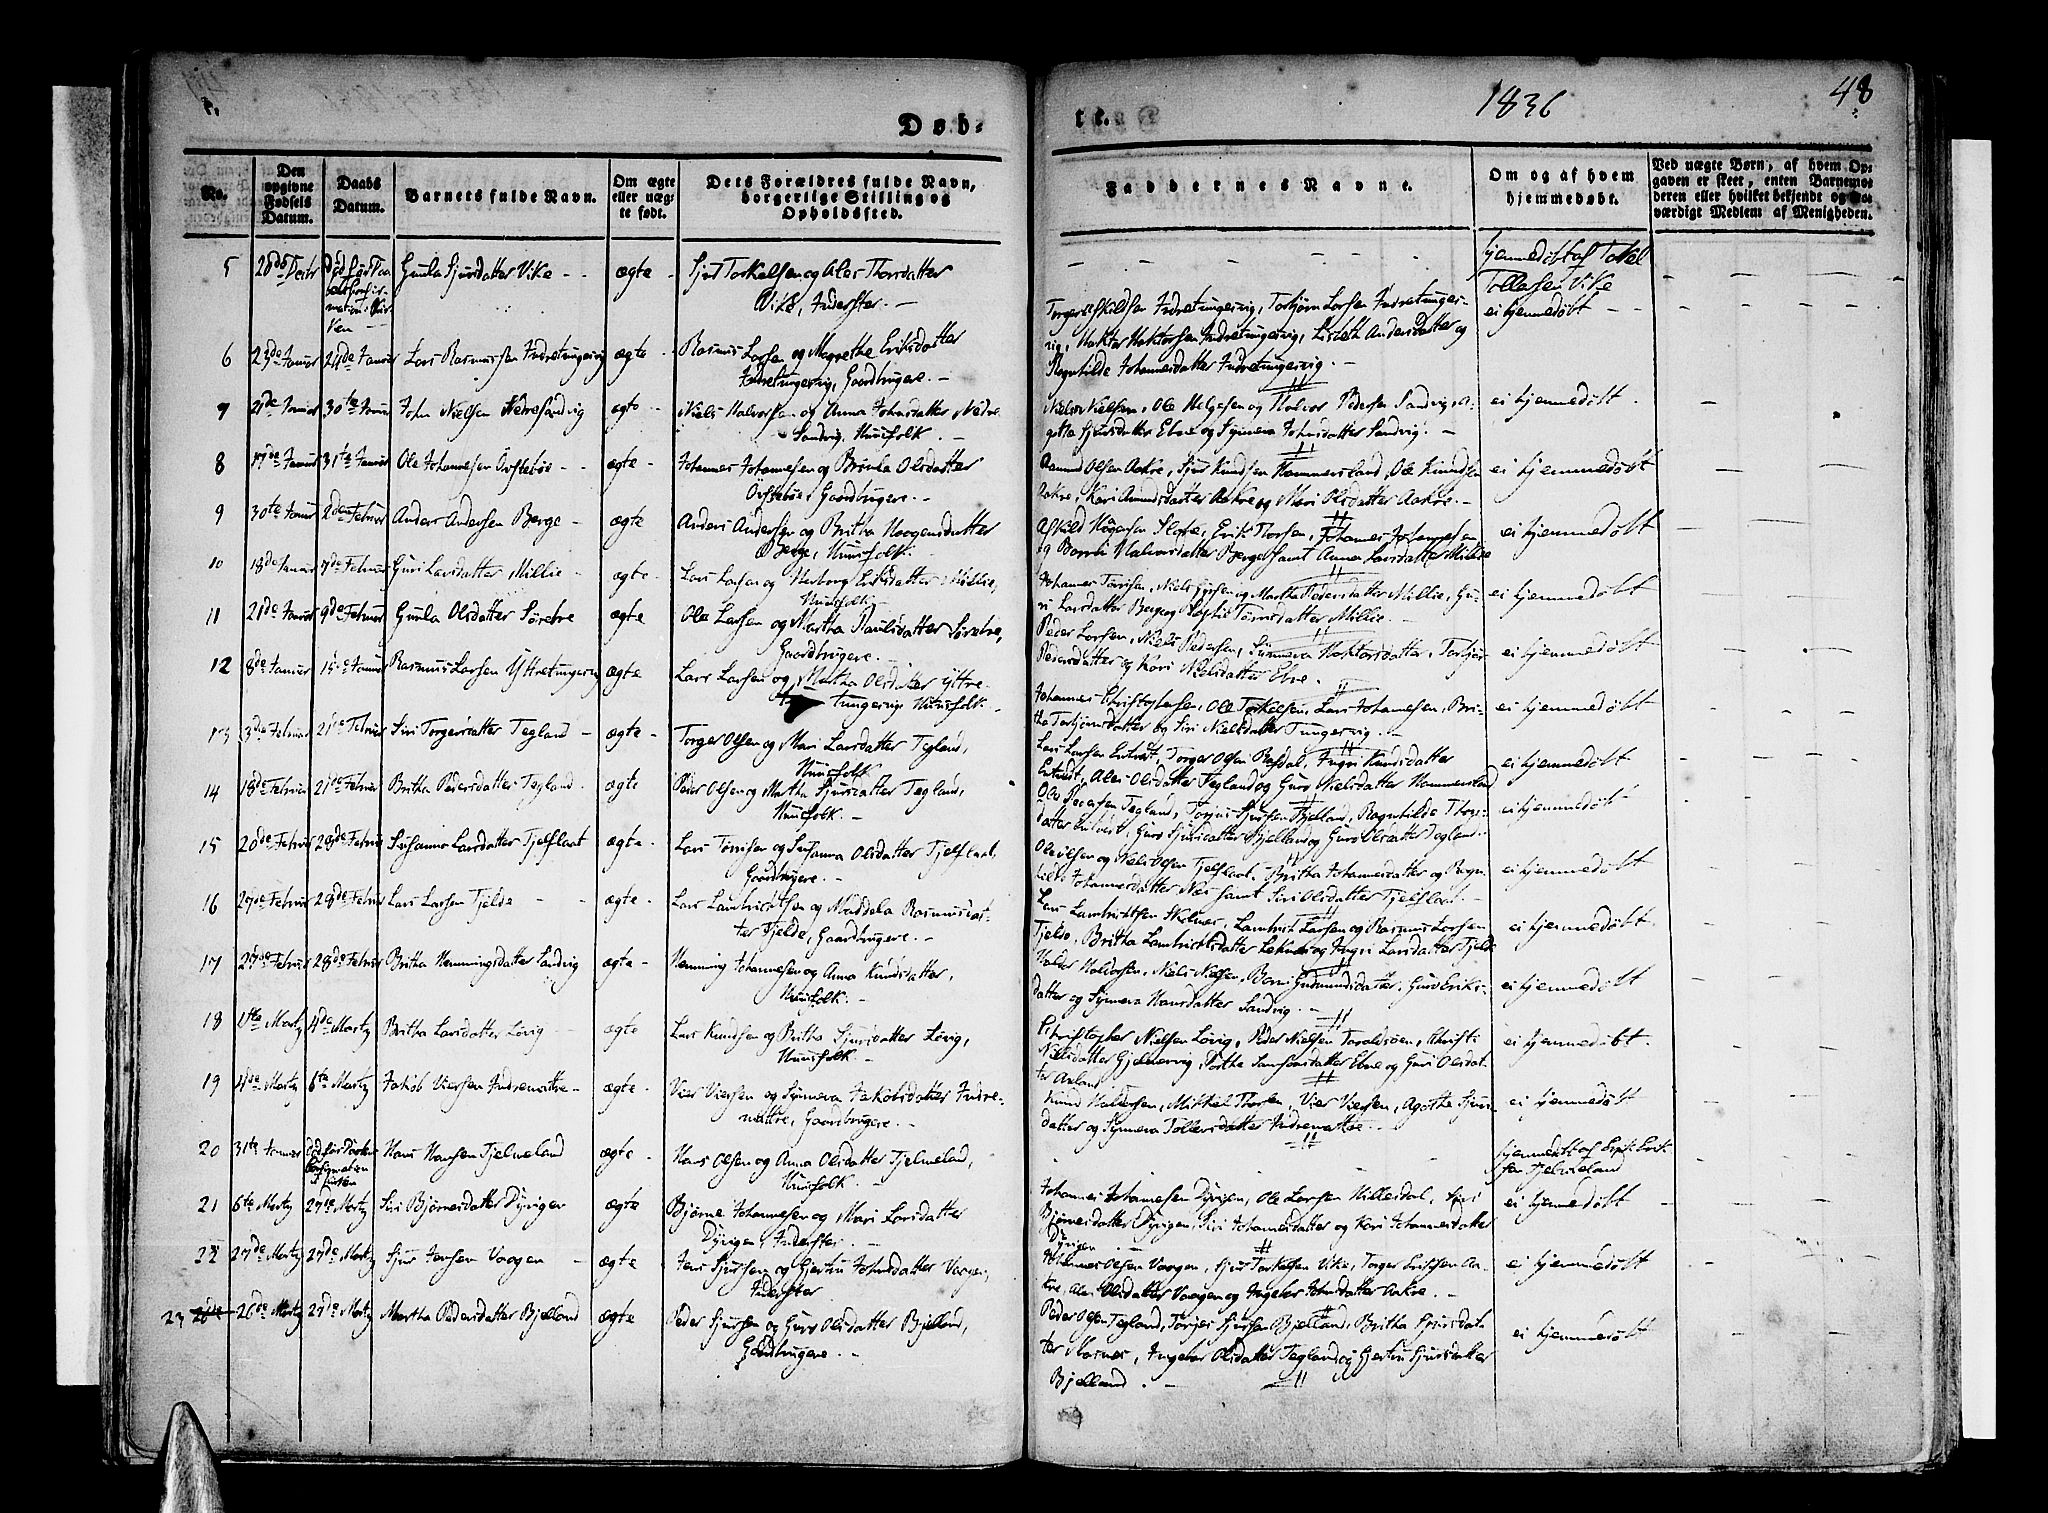 1836
48
Døb-
te.
No.
Den opgivne Fødsels Datum.
Daabs Datum.
Barnets fulde Navn.
Om ægte eller uæg- te født.
Dets Forældres fulde Navn, borgerlige Stilling og Opholdssted.
Faddernes Navne.
Om og af hvem hjemmedøbt.
Ved uægte Børn, af hvem Op- gaven er skeet, enten Barnemo- deren eller hvilket bekjendt og tro- værdigt Medlem af Menigheden.
5 28de Decbr Gunla Sjursdatter Vike ægte Sjur Torkelsen og Ales Thorsdatter
Vike, Inderster.
hjemmedøbt af Torkel
Tollefsen Vike
6 23de Januar 24de Januar Lars Rasmussen Indretungesvig ægte Rasmus Larsen og Magrethe Eriksdatter
Indretungesvig, Gaardbrugere.
Lisbeth Andersdatter og
Ragnhilde Johannesdatter Indretungesvig.
ei hjemmedøbt
7 21de Januar 30te Januar John Nielsen Nedresandvig ægte Niels Halvorsen og Anna Johnsdatter Nedre
Sandvig, Huusfolk.
Niels Nielsen, Ole Helgesen og Halvor Pedersen Sandvig, A-
gatha Sjursdatter Ebne og Synneva Johnsdatter Sandvig.
ei hjemmedøbt
8 17de Januar 31te Januar Ole Johannesen Øvstebøe ægte Johannes Johannesen og Brynla Olsdatter
Øvstebøe, Gaardbrugere.
Aamund Olsen Aakre, Sjur Knudsen Hammersland, Ole Knudsen
Aakre, Kari Amundsdatter Aakre og Mari Olsdatter Aakre.
ei hjemmedøbt
9 30te Januar 2den Februar Anders Andersen Berge ægte Anders Andersen og Britha Haagensdatter
Berge, Huusfolk.
Erik Thorsen, Johannes Johannesen
og Barni Halvorsdatter Berge samt Anna Larsdatter Millie
ei hjemmedøbt
10 18de Januar 7de Februar Guri Larsdatter Millie ægte Lars Larsen og Herborg Eriksdatter Millie,
Huusfolk
og Martha Pedersdatter Millie, Gu-
ri Larsdatter Berge og Sophie Tørrisdatter Millie.
ei hjemmedøbt
11 21de Januar 9de Februar Gunla Olsdatter Sørebre ægte Ole Larsen og Martha Paulsdatter Sørebre,
Gaardbrugere.
Peder Larsen, Niels Pedersen, Synneva Haktorsdatter, Torbjør
Pedersdatter og Kari Nielsdatter Ebne.
ei hjemmedøbt
12 8de Januar Januar Rasmus Larsen Yttretungesvig ægte Lars Larsen og Martha Olsdatter Yttre-
tungesvig, Huusfolk.
Johannes Christophersen, Ole Torkelsen, Lars Johannesen, Bri-
tha Torbjørnsdatter og Siri Nielsdatter Tungesvig.
ei hjemmedøbt
13 3die Februar 21de Februar Siri Torgersdatter Tegland ægte Torger Olsen og Mari Larsdatter Tegland,
Huusfolk
Lars Larsen Entvedt, Torger Olsen Ingri Knudsdatter
Entvedt, Ales Olsdatter Tegland og Guro Nielsdatter Hammersland
ei hjemmedøbt
14 18de Februar 21de Februar Britha Pedersdatter Tegland ægte Peder Olsen og Martha Sjursdatter Tegland,
Huusfolk.
Ole Pedersen Tegland, Torjus Sjursen Bjelland, Ragnhilde Thors-
datter Entvedt, Guro Sjursdatter Bjelland og Guro Olsdatter Tegland.
ei hjemmedøbt
15 20de Februar 28de Februar Susanna Larsdatter Tjelflaat ægte Lars Tørrisen og Susanna Olsdatter Tjelflaat,
Gaardbrugere.
Ole Olsen og Niels Olsen Tjelflaat, Britha Johannesdatter og Ragn-
hilde Johannesdatter Næs samt Siri Olsdatter Tjelflaat.
ei hjemmedøbt
16 27de Februar 28de Februar Lars Larsen Tjelde ægte Lars Lambrichtsen og Maddela Rasmusdat-
ter Tjelde, Gaardbrugere.
Lars Lambrichtsen Lambricht Larsen og Rasmus Larsen
Tjelde, Britha Lambrichtsdatter og Ingri Larsdatter Tjelde
ei hjemmedøbt
17 27de Februar 28de Februar Britha Hemmingsdatter Sandvig ægte Hemming Johannesen og Anna Knudsdatter,
Huusfolk.
Haldor Haldorsen, Niels Nielsen, Barni Gudmundsdatter, Guro Eriks-
datter og Synneva Hansdatter Sandvig.
ei hjemmedøbt
18 1ste Martz 4de Martz Britha Larsdatter Løvig ægte Lars Knudsen og Britha Sjursdatter Løvig,
Huusfolk.
Christopher Nielsen Løvig, Peder Nielsen
Nielsdatter Gjelmervig, Ebne og Guri Olsdat-
ter Aarland
ei hjemmedøbt.
19 4de Martz 6te Martz Jakob Viersen Indrematre ægte Vier Viersen og Synneva Jakobsdatter Indre-
mattre, Gaardbrugere.
Knud Haldorsen, Mikkel Thorsen, Vier Viersen, Agatha Sjurs-
datter og Synneva Tollefsdatter Indremattre.
ei hjemmedøbt
20 31te Januar Hans Hansen Tjelmeland ægte Hans Olsen og Anna Olsdatter Tjelmeland,
Huusfolk.
hjemmedøbt af Erik Erik-
sen Tjelmeland
21 6te Martz 27de Martz Siri Bjørnesdatter Dyvigen ægte Bjørne Johannesen og Mari Larsdatter
Dyvigen, Inderster.
Johannes Johannesen Dyvigen, Ole Larsen Hillesdal, Siri
Bjørnesdatter Dyvigen, Siri Johannesdatter og Kari Johannesdatter
Dyvigen
ei hjemmedøbt
22 27de Martz 27de Martz Sjur Jensen Vaagen ægte Jens Sjursen og Gjertru Johnsdatter Vaagen,
Inderster
Johannes Olsen Vaagen, Sjur Torkelsen Vike, Torger Eriksen Aa-
kre, Ales Olsdatter Vaagen og Ingebor Johnsdatter Aakre.
ei hjemmedøbt
23 26de Martz 27de Martz Martha Pedersdatter Bjelland ægte Peder Sjursen og Guro Olsdatter Bjelland,
Gaardbrugere.
Peder Olsen Tegland, Torjus Sjursen Bjelland, Britha Sjursdat-
ter Ingebor Olsdatter Tegland og Gjertru Sjursdatter
Bjelland.
ei hjemmedøbt